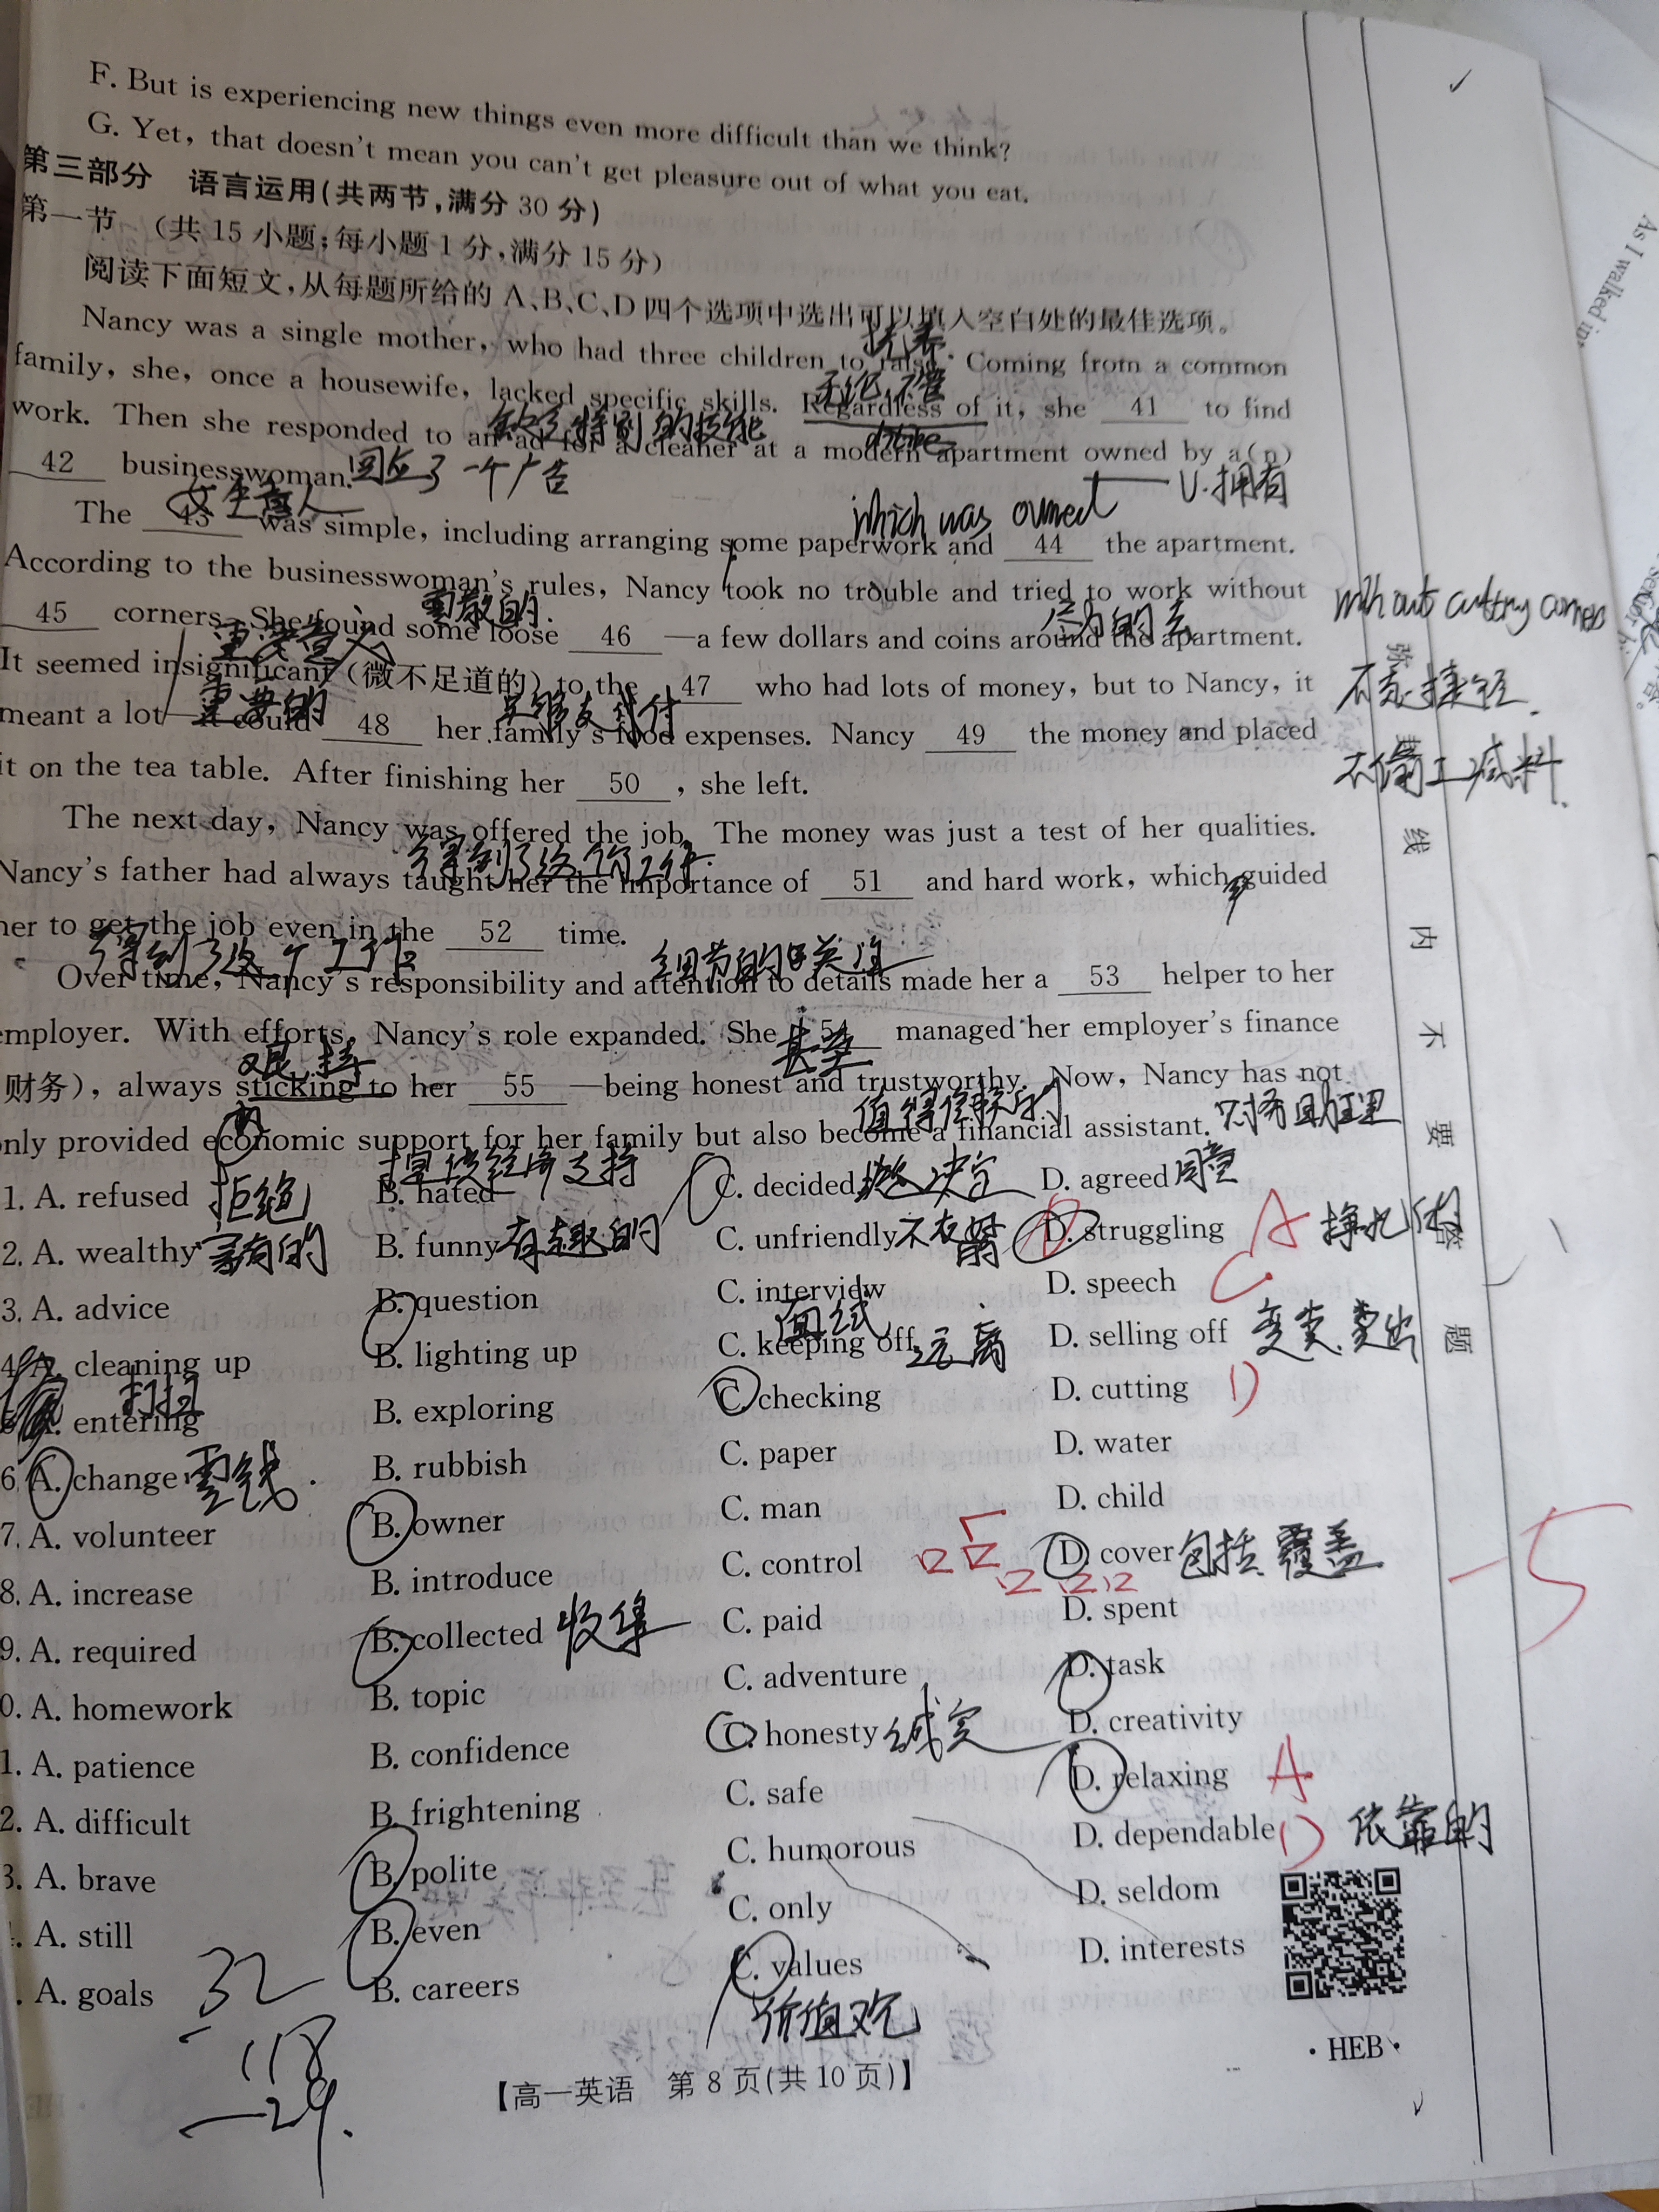 F. But is experiencing new things even more difficult than we think?
G. Yet, that doesn't mean you can't get pleasure out of what you eat.
第三部分 语言运用(共两节,满分30分)
第一节 (共15小题;每小题1分,满分15分)
阅读下面短文,从每题所给的A、B、C、D四个选项中选出可以填入空白处的最佳选项。
Nancy was a single mother, who had three children to raise. Coming from a common
抚养
family, she, once a housewife, lacked specific skills. Regardless of it, she 41 to find
无论,不管
缺乏特别的技能
despite
work. Then she responded to an ad for a cleaner at a modern apartment owned by a(n)
42 businesswoman.
回应了一个广告
女生意人
which was owned
v.拥有
The 43 was simple, including arranging some paperwork and 44 the apartment.
According to the businesswoman's rules, Nancy took no trouble and tried to work without
without cutting corners
45 corners. She found some loose 46 —a few dollars and coins around the apartment.
It seemed insignificant (微不足道的) to the 47 who had lots of money, but to Nancy, it
不走捷径.
重要的
meant a lot—it could 48 her family's food expenses. Nancy 49 the money and placed
不偷工减料.
it on the tea table. After finishing her 50 , she left.
The next day, Nancy was offered the job. The money was just a test of her qualities.
得到了这个工作.
Nancy's father had always taught her the importance of 51 and hard work, which guided
her to get the job even in the 52 time.
得到了这个工作
细节的关注
Over time, Nancy's responsibility and attention to details made her a 53 helper to her
employer. With efforts, Nancy's role expanded. She 54 managed her employer's finance
甚至
坚持
财务), always sticking to her 55 —being honest and trustworthy. Now, Nancy has not
值得信赖的
only provided economic support for her family but also become a financial assistant.
财务助理
提供经济支持
1. A. refused 拒绝 B. hated C. decided 决定 D. agreed 同意
2. A. wealthy 富有的 B. funny 有趣的 C. unfriendly 不友好 D. struggling A 挣扎的
3. A. advice B. question C. interview D. speech C
面试
4. A. cleaning up B. lighting up C. keeping off 远离 D. selling off 变卖,卖出
打扫
5. A. entering B. exploring C. checking D. cutting D
6. A. change 零钱. B. rubbish C. paper D. water
7. A. volunteer B. owner C. man D. child
8. A. increase B. introduce C. control D. cover 包括,覆盖
-5
9. A. required B. collected 收集 C. paid D. spent
0. A. homework B. topic C. adventure D. task
1. A. patience B. confidence C. honesty 诚实 D. creativity
2. A. difficult B. frightening C. safe D. relaxing A
3. A. brave B. polite C. humorous D. dependable D 依靠的
. A. still B. even C. only D. seldom
. A. goals B. careers C. values D. interests
价值观
32
118
-29.
【高一英语 第8页(共10页)】
·HEB·
弥
封
线
内
不
要
答
题
As I walked in